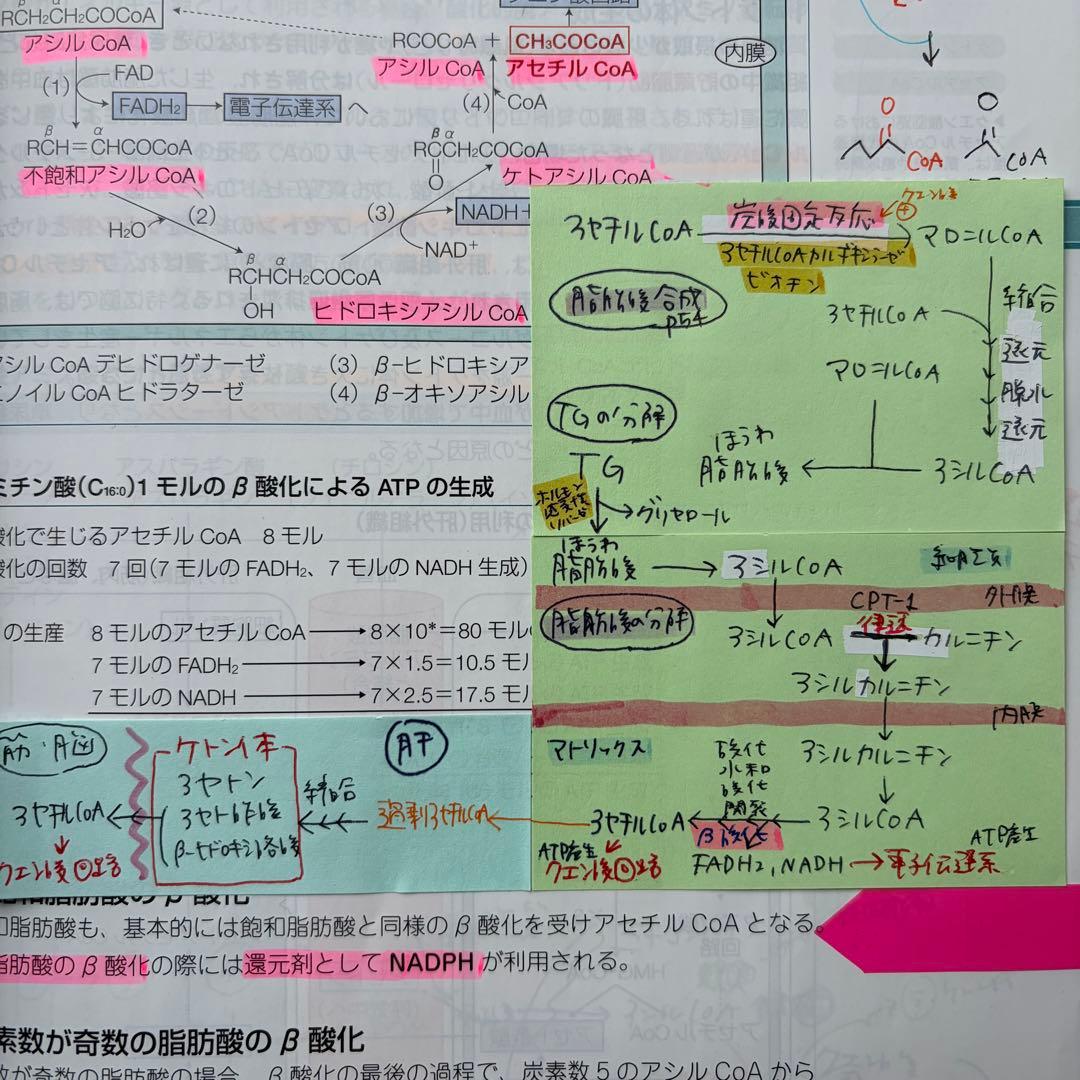 RCH₂CH₂COCoA
アシル CoA
FAD
(1)
FADH₂
電子伝達系へ
β α
RCH＝CHCOCoA
不飽和アシル CoA
(2)
H₂O
β α
RCHCH₂COCoA
OH
ヒドロキシアシル CoA
(3)
NAD⁺
NADH＋
β α
RCCH₂COCoA
O
ケトアシル CoA
(4)
CoA
RCOCoA ＋ CH₃COCoA
アシル CoA アセチル CoA
内膜
O
CoA
O
CoA
アシル CoA デヒドロゲナーゼ (3) β-ヒドロキシア
エノイル CoA ヒドラターゼ (4) β-オキソアシル
ミチン酸(C₁₆:₀)1 モルの β 酸化による ATP の生成
酸化で生じるアセチル CoA 8 モル
酸化の回数 7 回(7 モルの FADH₂、7 モルの NADH 生成)
の生産 8 モルのアセチル CoA→8×10*＝80 モル
7 モルの FADH₂→7×1.5＝10.5 モル
7 モルの NADH→7×2.5＝17.5 モル
クエン酸
＋
アセチルCoA 炭酸固定反応 マロニルCoA
アセチルCoAカルボキシラーゼ
ビオチン
脂肪酸合成
p54
アセチルCoA
縮合
還元
脱水
還元
マロニルCoA
アシルCoA
ほうわ
脂肪酸
TGの分解
TG
ホルモン
感受性
リパーゼ
グリセロール
ほうわ
脂肪酸
アシルCoA
細胞質
外膜
脂肪酸の分解
CPT-1
律速
アシルCoA カルニチン
アシルカルニチン
内膜
マトリックス
アシルカルニチン
アシルCoA
酸化
水和
酸化
開裂
β酸化
アセチルCoA
ATP産生
クエン酸回路
FADH₂, NADH→電子伝達系
ATP産生
肝
過剰アセチルCoA
縮合
ケトン体
アセトン
アセト酢酸
β-ヒドロキシ酪酸
筋・脳
アセチルCoA
クエン酸回路
飽和脂肪酸の β 酸化
和脂肪酸も、基本的には飽和脂肪酸と同様の β 酸化を受けアセチル CoA となる。
脂肪酸の β 酸化の際には還元剤として NADPH が利用される。
素数が奇数の脂肪酸の β 酸化
数が奇数の脂肪酸の場合、β 酸化の最後の過程で、炭素数 5 のアシル CoA から